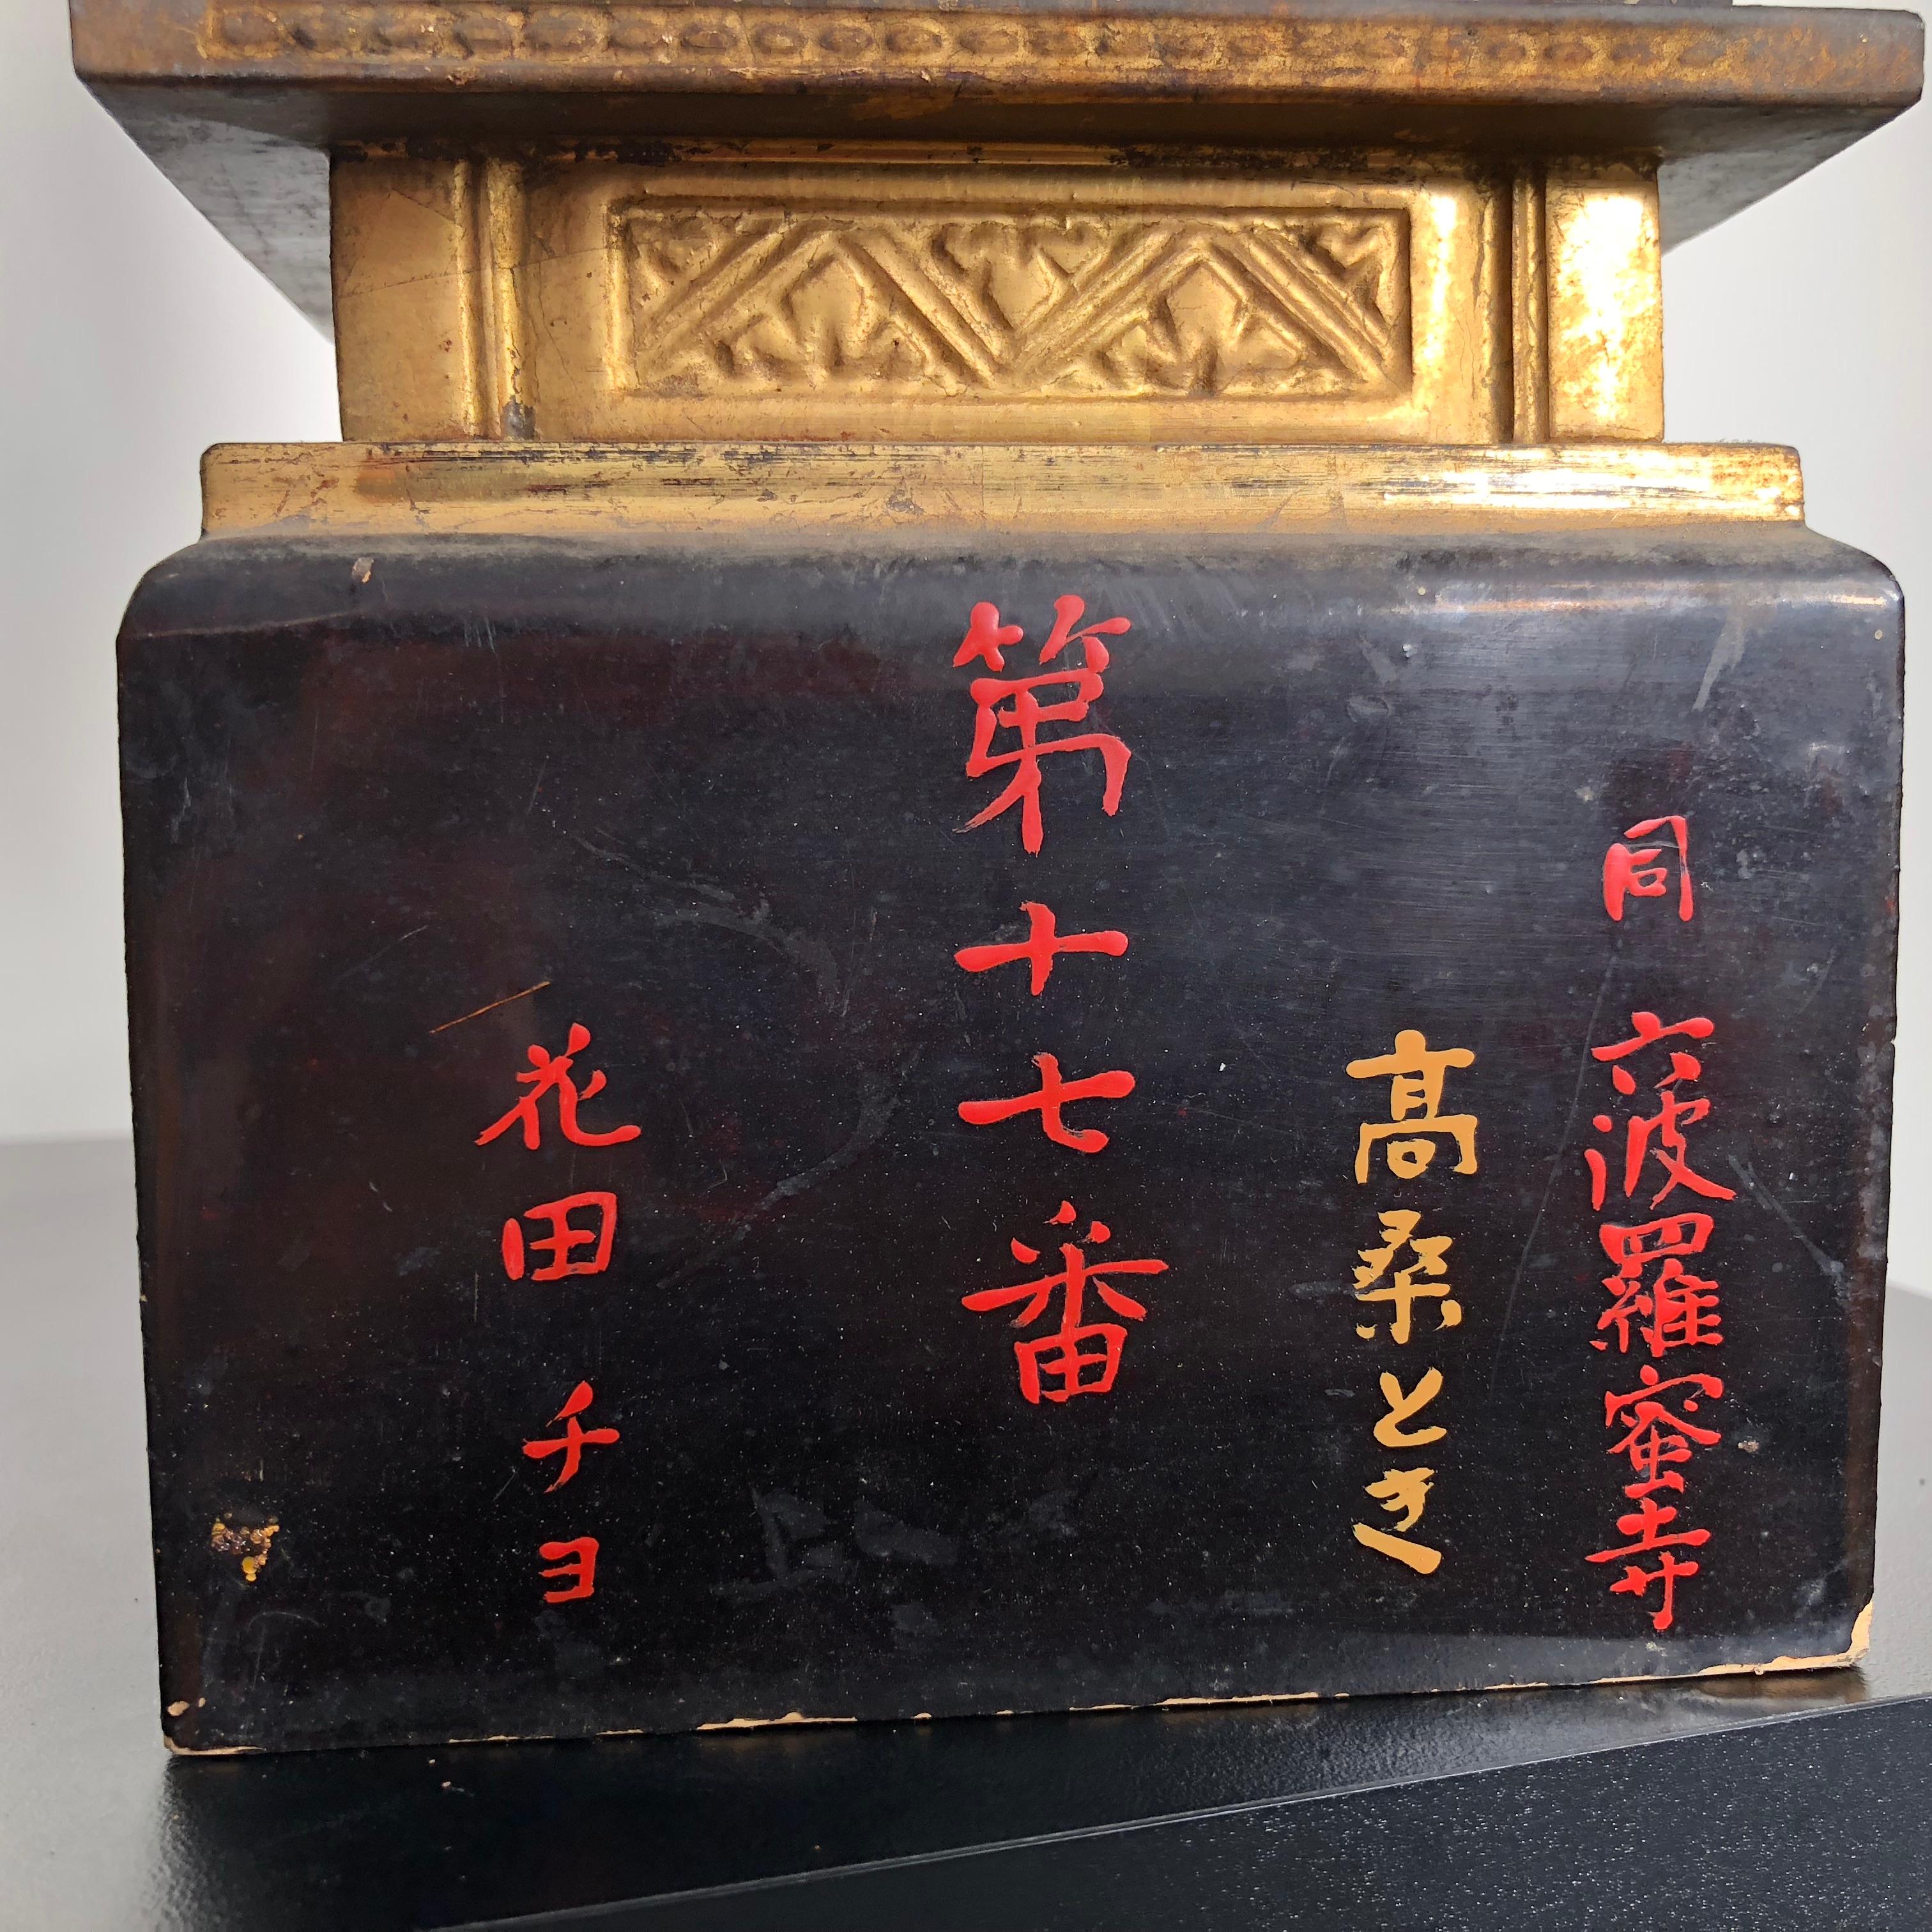 同 六波羅蜜寺
高桑とき
第十七番
花田チヨ